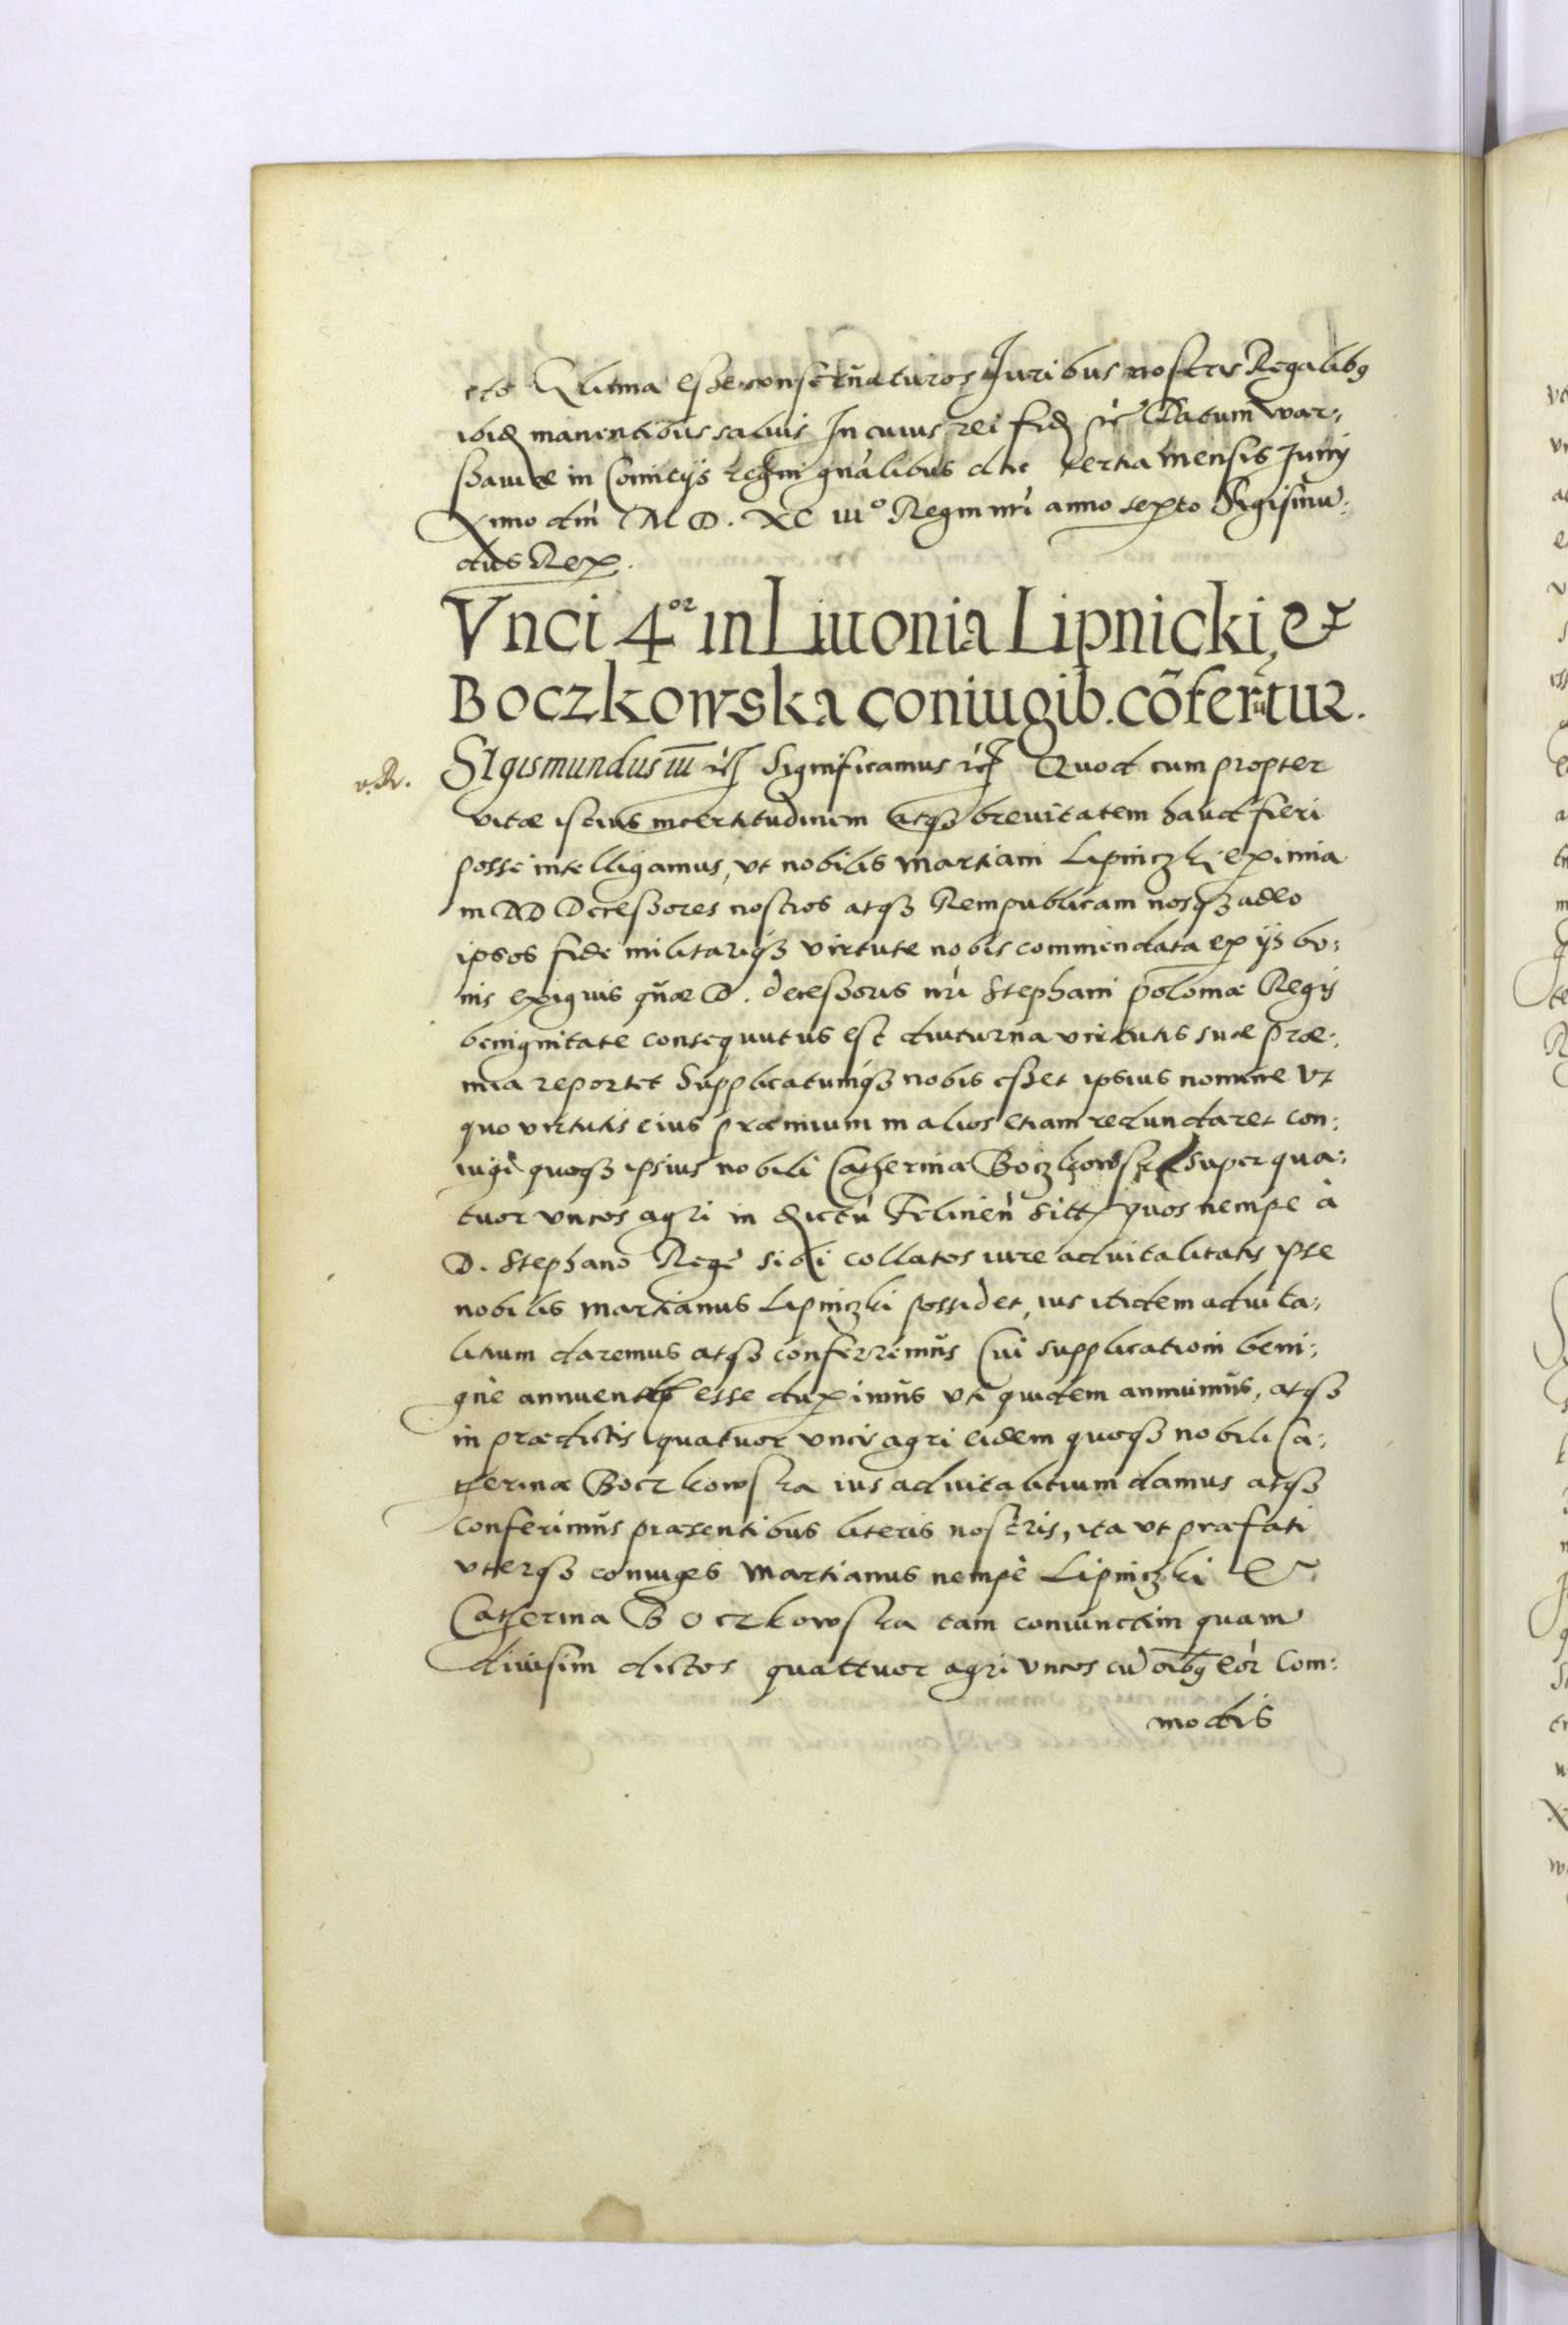 esse conseruaturos Iuribus nostris Regalibq
ibid manentibus saluis In cuius rei fid rc̃ Datum War:
ssauiæ in Comitijs regni gnãlibus die tertia mensis Junij
Anno dni M D. XC iiiº Regni nri anno sexto Sigismu:
dus Rex.
Vnci 4or in Liuonia Lipnicki, et
Boczkowska coniugib. cõferũtur.
v. R. SIgismundus iii rc̃ Significamus rc̃ Quod cum propter
vitæ istius incertitudinem atqз breuitatem haud fieri
posse intelligamus, vt nobilis Martiani Lipniczki eximia
in DD Decessores nostros atqз Rempublicam nosqз adeo
ipsos fide militariqз virtute nobis commendata ex ijs bo:
nis exiguis quæ D. decessoris nri Stephani Poloniæ Regis
benignitate consequutus est diuturna virtutis suæ præ:
mia reportet Supplicatumqз nobis esset ipsius nomine vt
quo virtutis eius præmium in alios etiam redundaret con:
iugi quoqз ipsius nobili Catherinæ Boczkowska super qua:
tuor vncos agri in districtu Felinen sitt quos nempe à
D. Stephano Rege sibi collatos iure aduitalitatis ipse
nobilis Martianus Lipniczki possidet, ius itidem aduita:
litium daremus atqз conferremus Cui supplicationi beni:
gnè annuend esse duximus vti quidem annuimus, atqз
in prædictis quatuor vncis agri eidem quoqз nobili Ca:
terinæ Boczkowska ius aduitalitium damus atqз
conferimus præsentibus literis nostris, ita vt præfati
vterqз coniuges Martianus nempè Lipniczki &
Catherina Boczkowska tam coniunctim quam
diuisim dictos quattuor agri vncos cũ oĩbq eor com:
modis